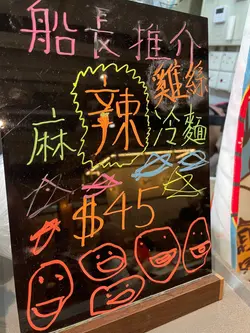 船長推介
麻辣雞絲冷麵
$45